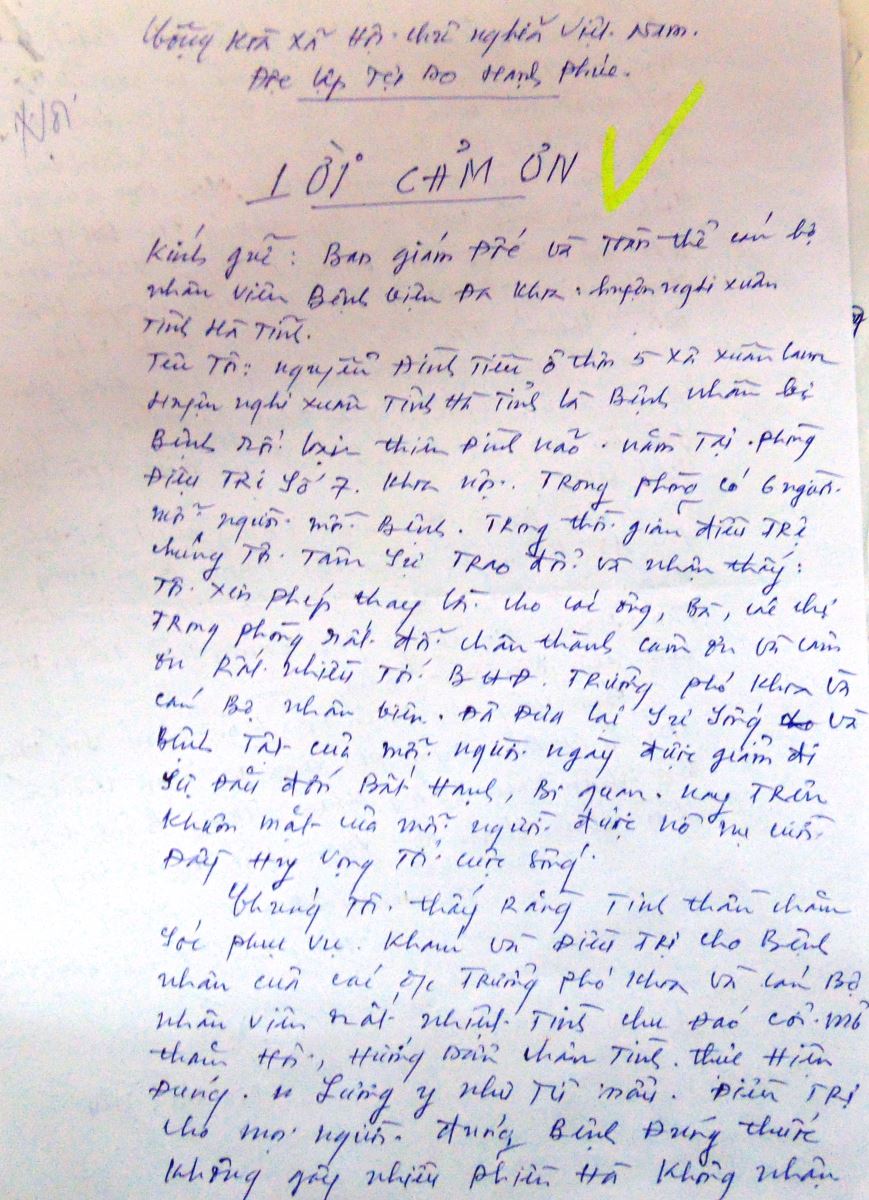 Cộng Hoà Xã Hội chủ nghĩa Việt Nam.
Độc lập Tự Do Hạnh Phúc.
LỜI CẢM ƠN
Kính gửi: Ban giám Đốc và Toàn thể cán bộ
nhân viên Bệnh viện Đa khoa huyện nghi xuân
Tỉnh Hà Tĩnh.
Tên Tôi: nguyễn Đình Tiến ở thôn 5 xã xuân lam
Huyện nghi xuân Tỉnh Hà Tỉnh là Bệnh nhân bị
Bệnh rối loạn thiên Đình não. nằm Tại phòng
Điều TRị Số 7. Khoa nội. TRong phòng có 6 người.
mỗi người mỗi Bệnh. TRong thời gian điều TRị
chúng Tôi Tâm Sự TRao đổi và nhận thấy:
Tôi xin phép thay lời cho các ông, Bà, các chị
TRong phòng rất đỗi chân thành cảm ơn và cảm
ơn Rất nhiều Tới BHĐ. TRưởng phó khoa và
cán Bộ nhân viên. Đã Đưa lại Sự Sống và
Bệnh Tật của mỗi người ngày được giảm đi
Sự Đau đớn Bất Hạnh, Bi quan. nay TRên
khuôn mặt của mỗi người được nở nụ cười
Đầy Hy Vọng Tới cuộc Sống.
Chúng Tôi thấy Rằng Tinh thần chăm
Sóc phục vụ. Khám và Điều TRị cho Bệnh
nhân của các TRưởng phó khoa và cán Bộ
nhân viên rất nhiệt Tình chu Đáo cởi mở
thăm Hỏi, Hướng Dẫn chân Tình. thực Hiện
Đúng. " Lương y như Từ mẫu. Điều TRị
cho mọi người. đúng Bệnh Đúng thuốc
Không gây nhiều phiền Hà Không nhận